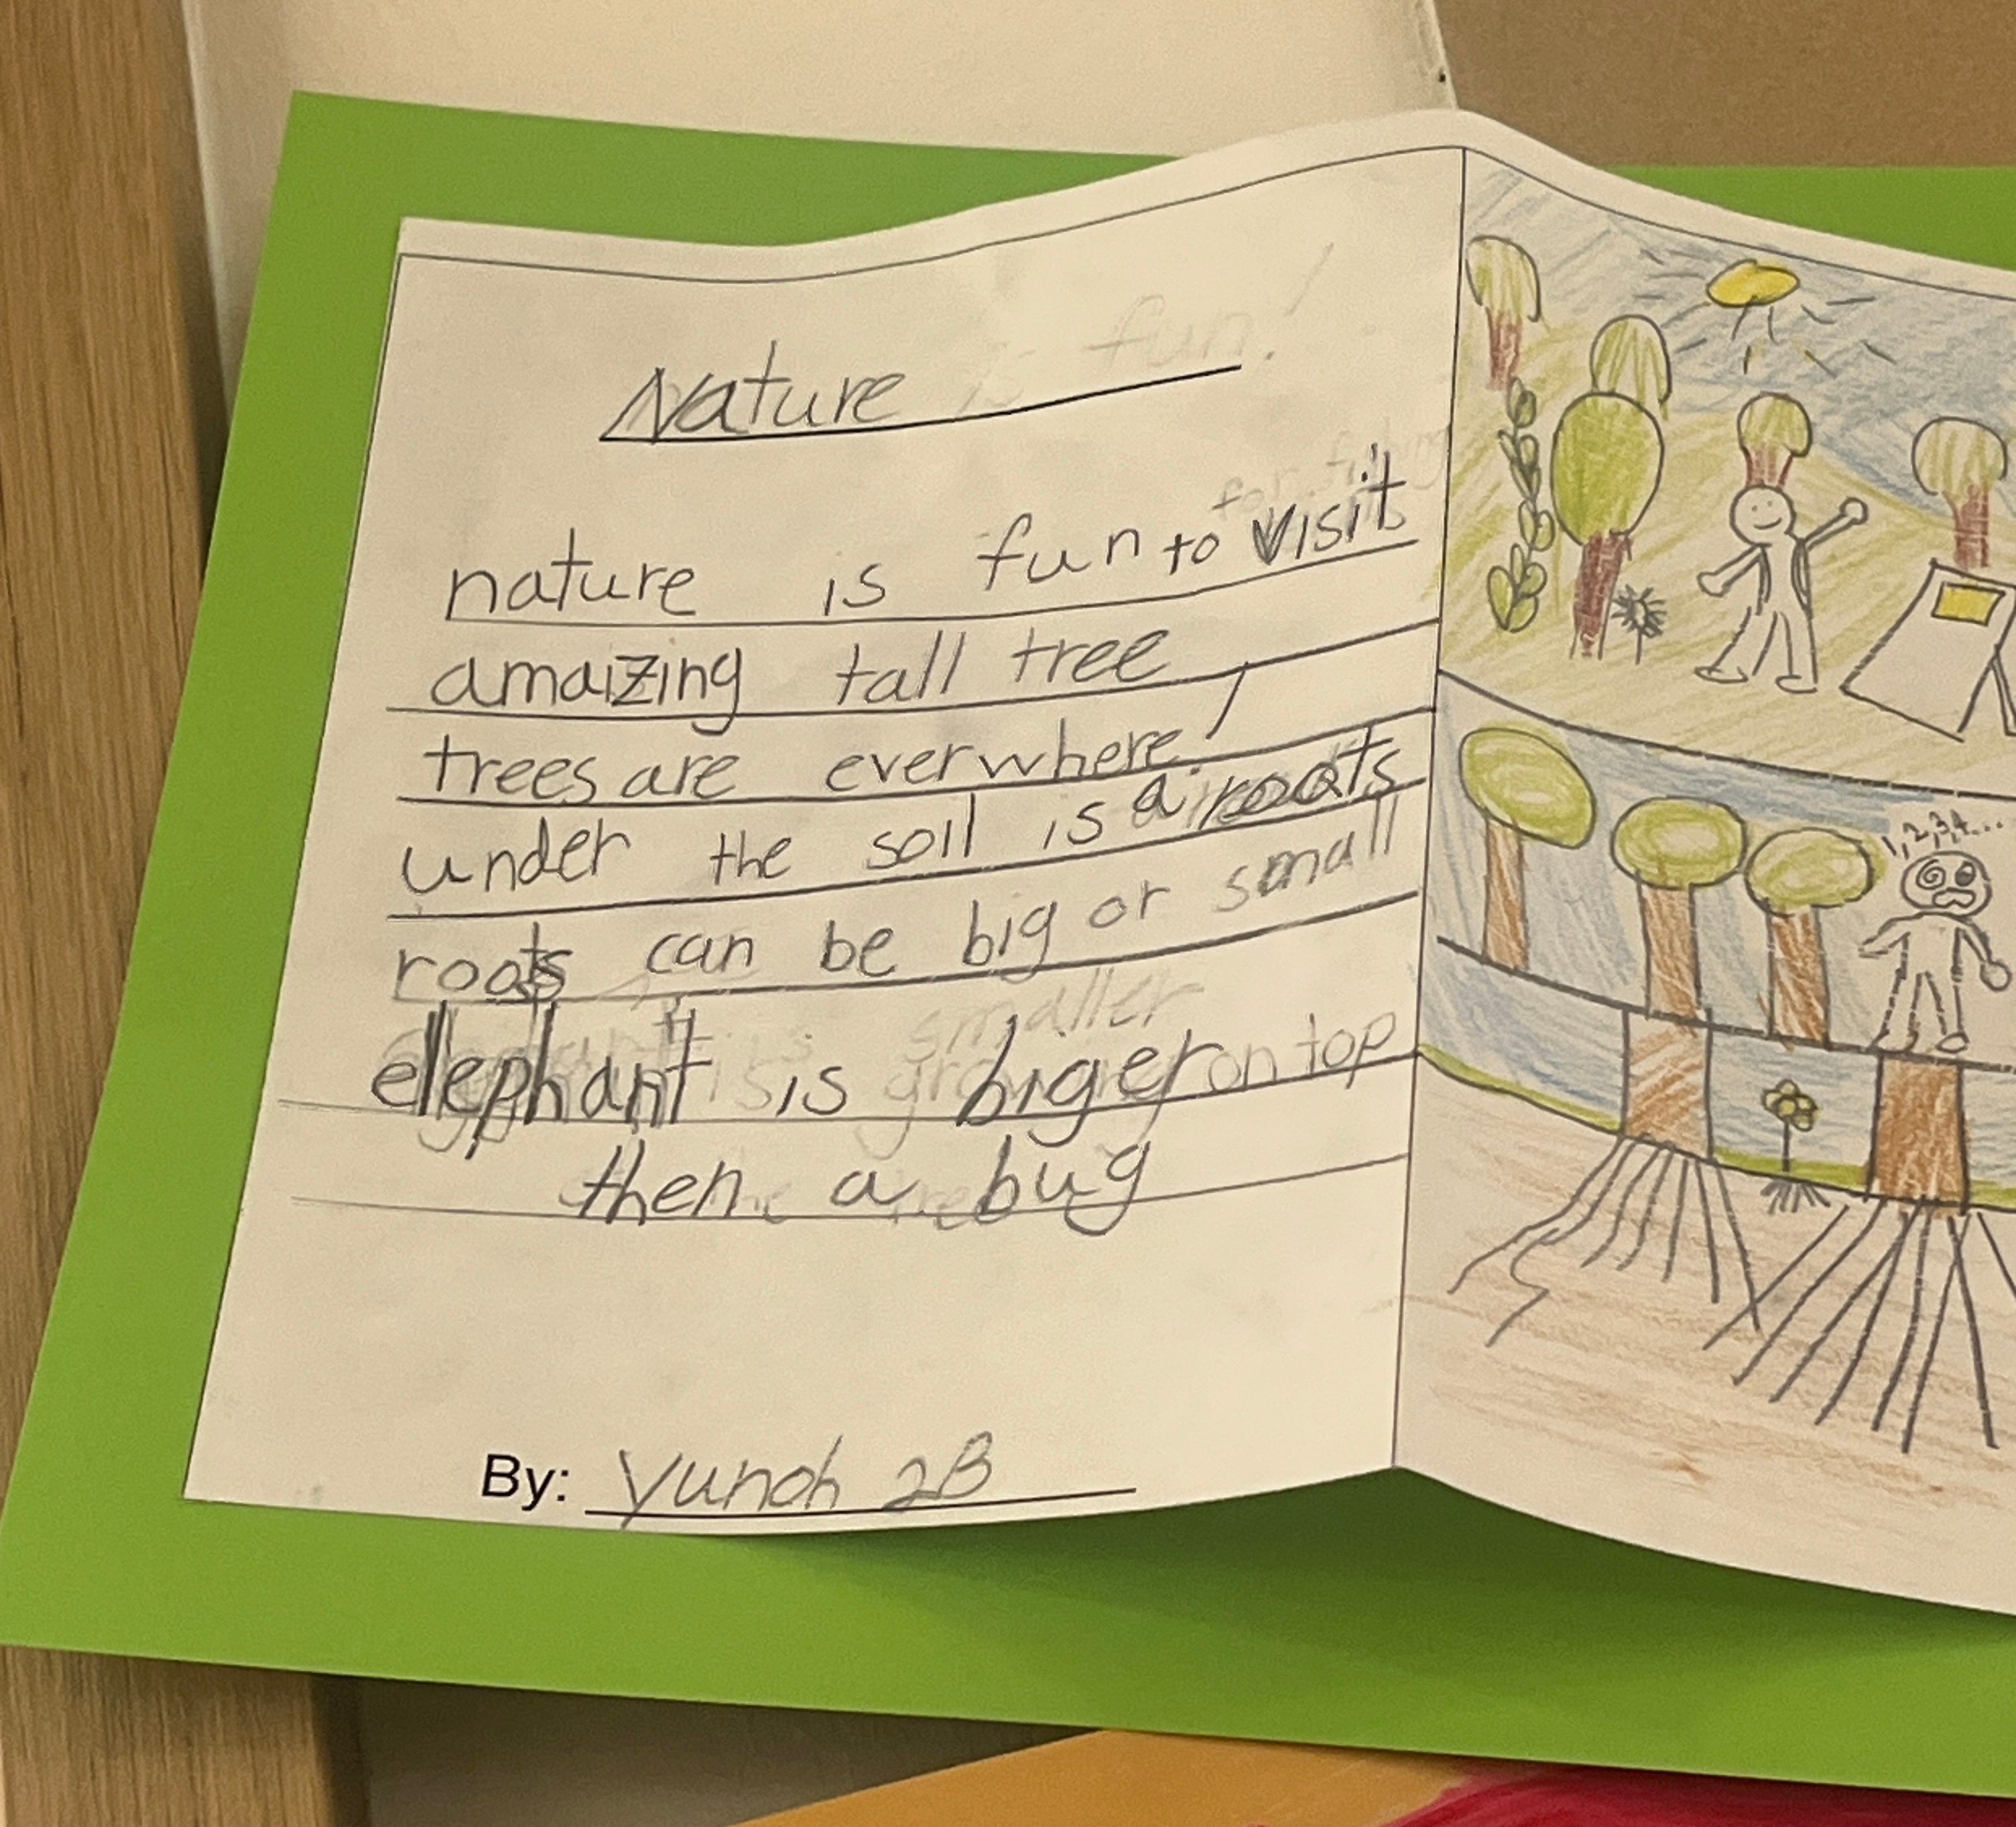 Nature
nature is fun to visit
amaizing tall tree
trees are everwhere!
under the soil is a roots
roots can be big or small
elephant is biger on top
then a bug
By: Yunoh 2B
1,2,3,4...